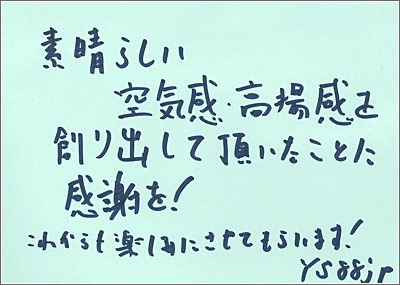 素晴らしい
空気感・高揚感を
創り出して頂いたことに
感謝を!
これからも楽しみにさせてもらいます!
YS88jp